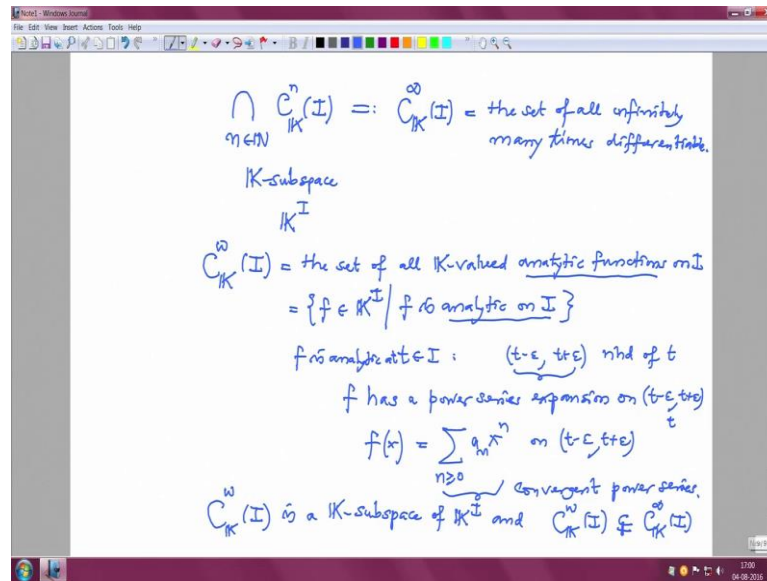 Note1 - Windows Journal
File Edit View Insert Actions Tools Help
⋂ C^n_𝕂(I) =: C^∞_𝕂(I) = the set of all infinitely
n∈ℕ many times differentiable.
𝕂-subspace
𝕂^I
C^ω_𝕂(I) = the set of all 𝕂-valued analytic functions on I
= {f ∈ 𝕂^I | f is analytic on I}
f is analytic at t ∈ I : (t-ε, t+ε) nhd of t
f has a power series expansion on (t-ε, t+ε)
t
f(x) = ∑ a_n x^n on (t-ε, t+ε)
n≥0 convergent power series.
C^ω_𝕂(I) is a 𝕂-subspace of 𝕂^I and C^ω_𝕂(I) ⊊ C^∞_𝕂(I)
17:00
04-08-2016